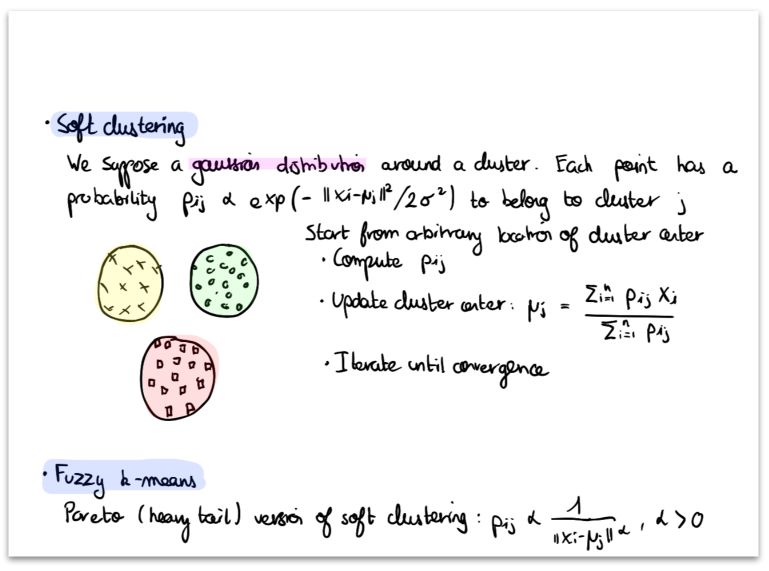 · Soft clustering
We suppose a gaussian distribution around a cluster. Each point has a
probability pij ∝ exp(- ||xi-μj||²/2σ²) to belong to cluster j
Start from arbitrary location of cluster center
· Compute pij
· Update cluster center: μj = Σi=1^n pij xj / Σi=1^n pij
· Iterate until convergence
· Fuzzy k-means
Pareto (heavy tail) version of soft clustering: pij ∝ 1/||xi-μj||^α, α>0